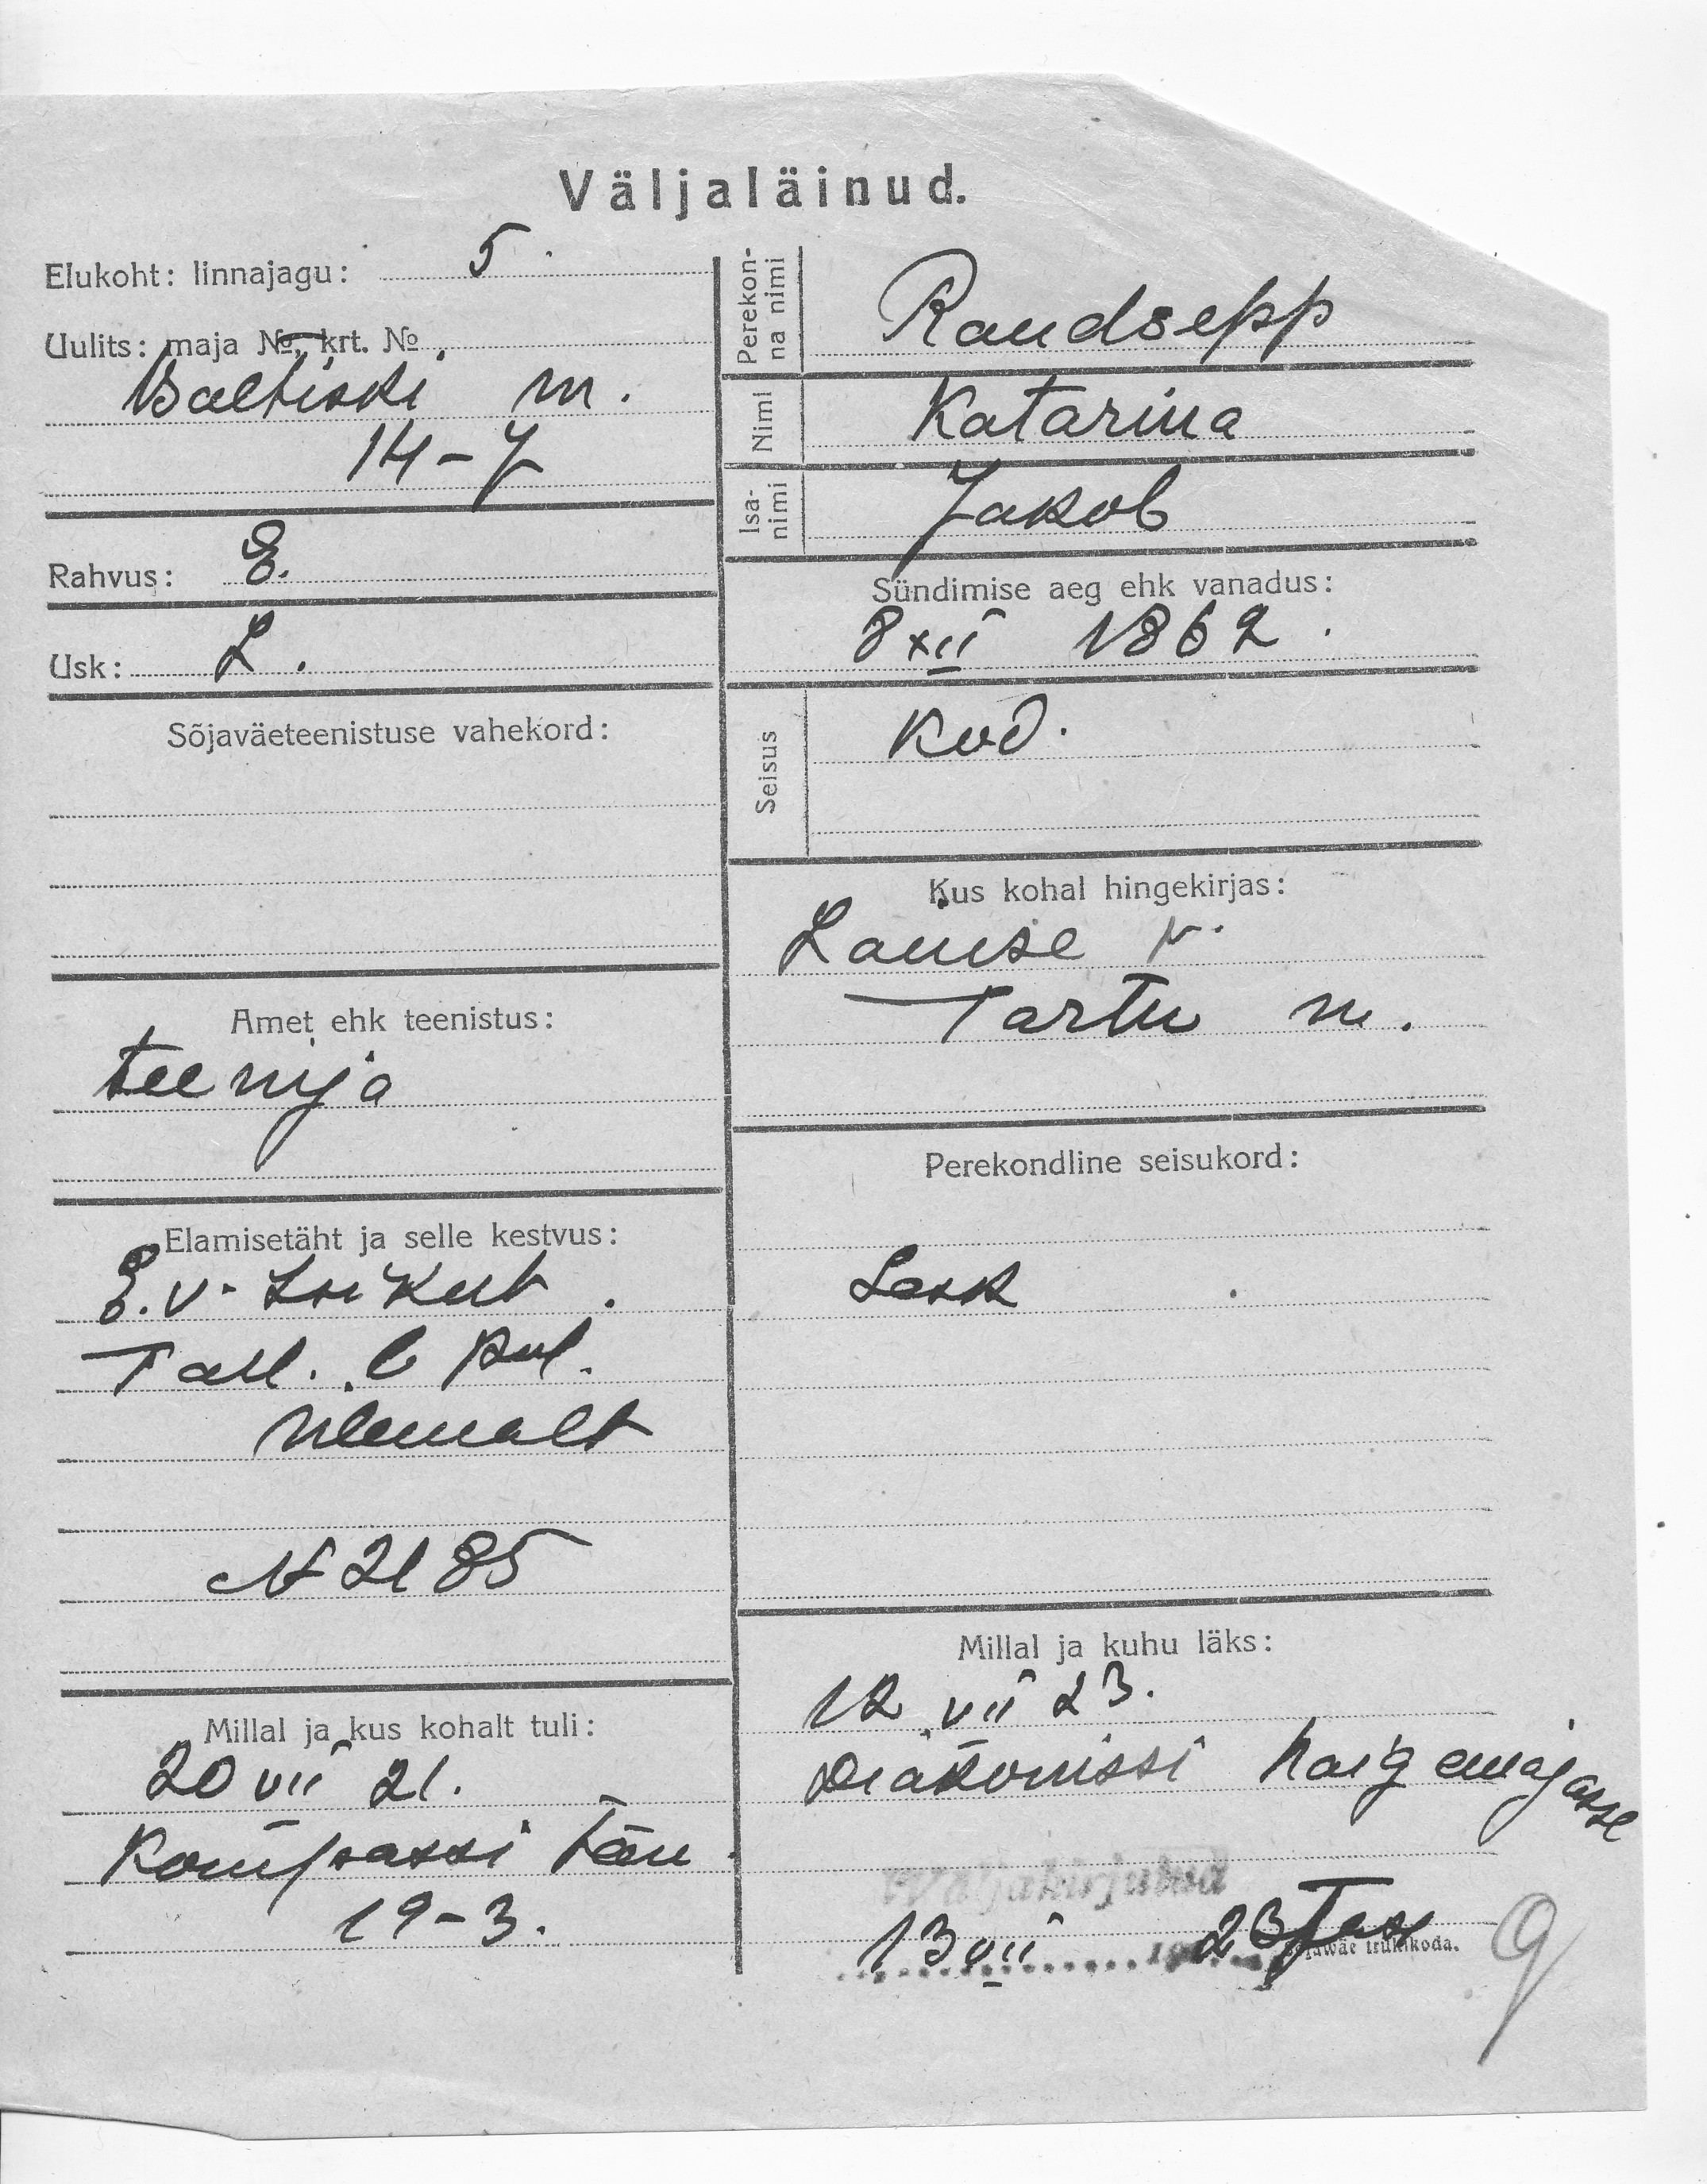 Väljaläinud.
Elukoht: linnajagu: 5.
Uulits: maja №, krt. №
Baltiski m.
14-7
Rahvus: E.
Usk: L.
Sõjaväeteenistuse vahekord:
Amet ehk teenistus:
teenija
Elamisetäht ja selle kestvus:
E.V.
Tall. Pol.
ülemalt
№ 2185
Millal ja kus kohalt tuli:
20 VII 21.
Kompassi tän.
19-3.
Perekon-
na nimi
Raudsepp
Nimi Katarina
Isa-
nimi
Jakob
Sündimise aeg ehk vanadus:
8 XII 1862.
Seisus Kod.
Kus kohal hingekirjas:
v.
Tartu m.
Perekondline seisukord:
Lesk
Millal ja kuhu läks:
12 VII 23.
Diakonissi haigemajasse
Väljakirjutud
13 VII 1923
trükikoda.
9